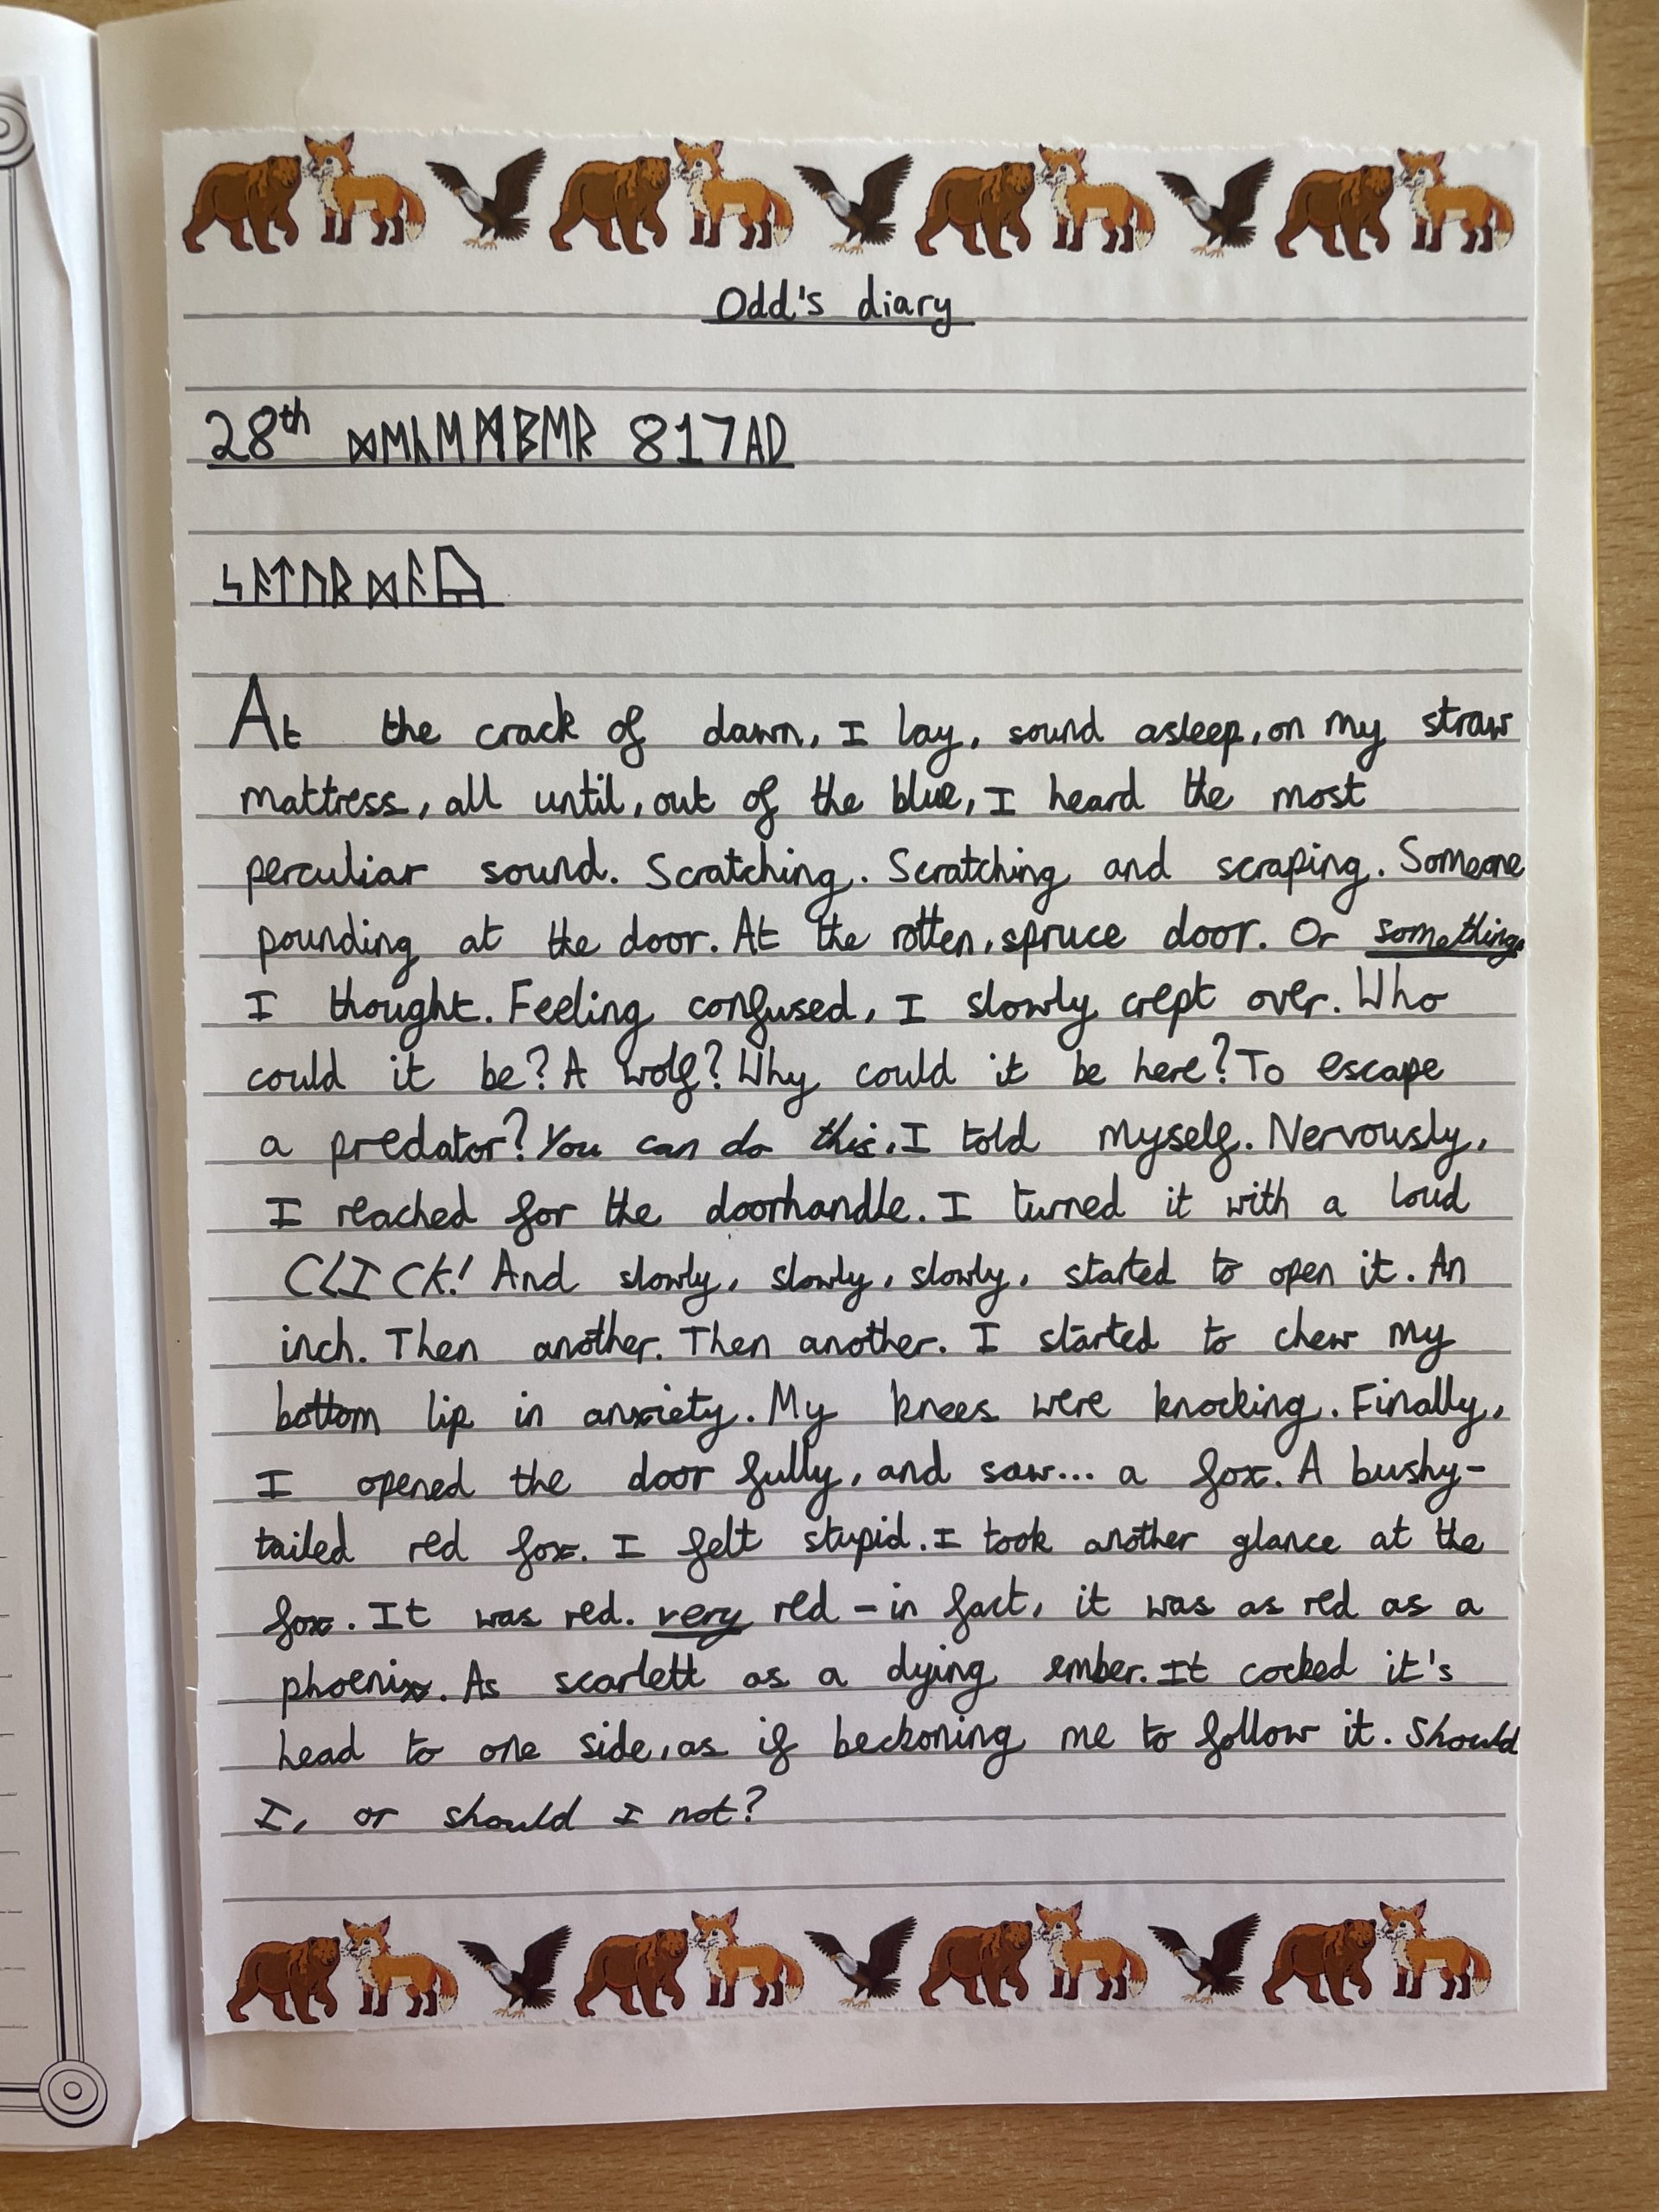 Odd's diary
28th ᛞᛖᚳᛖᛗᛒᛖᚱ 817AD
ᛋᚨᛏᚢᚱᛞᚨ
At the crack of dawn, I lay, sound asleep, on my straw
mattress, all until, out of the blue, I heard the most
perculiar sound. Scratching. Scratching and scraping. Someone
pounding at the door. At the rotten, spruce door. Or something,
I thought. Feeling confused, I slowly crept over. Who
could it be? A wolf? Why could it be here? To escape
a predator? You can do this, I told myself. Nervously,
I reached for the doorhandle. I turned it with a loud
CLICK! And slowly, slowly, slowly, started to open it. An
inch. Then another. Then another. I started to chew my
bottom lip in anxiety. My knees were knocking. Finally,
I opened the door fully, and saw... a fox. A bushy-
tailed red fox. I felt stupid. I took another glance at the
fox. It was red. very red - in fact, it was as red as a
phoenix. As scarlett as a dying ember. It cocked it's
head to one side, as if beckoning me to follow it. Should
I, or should I not?